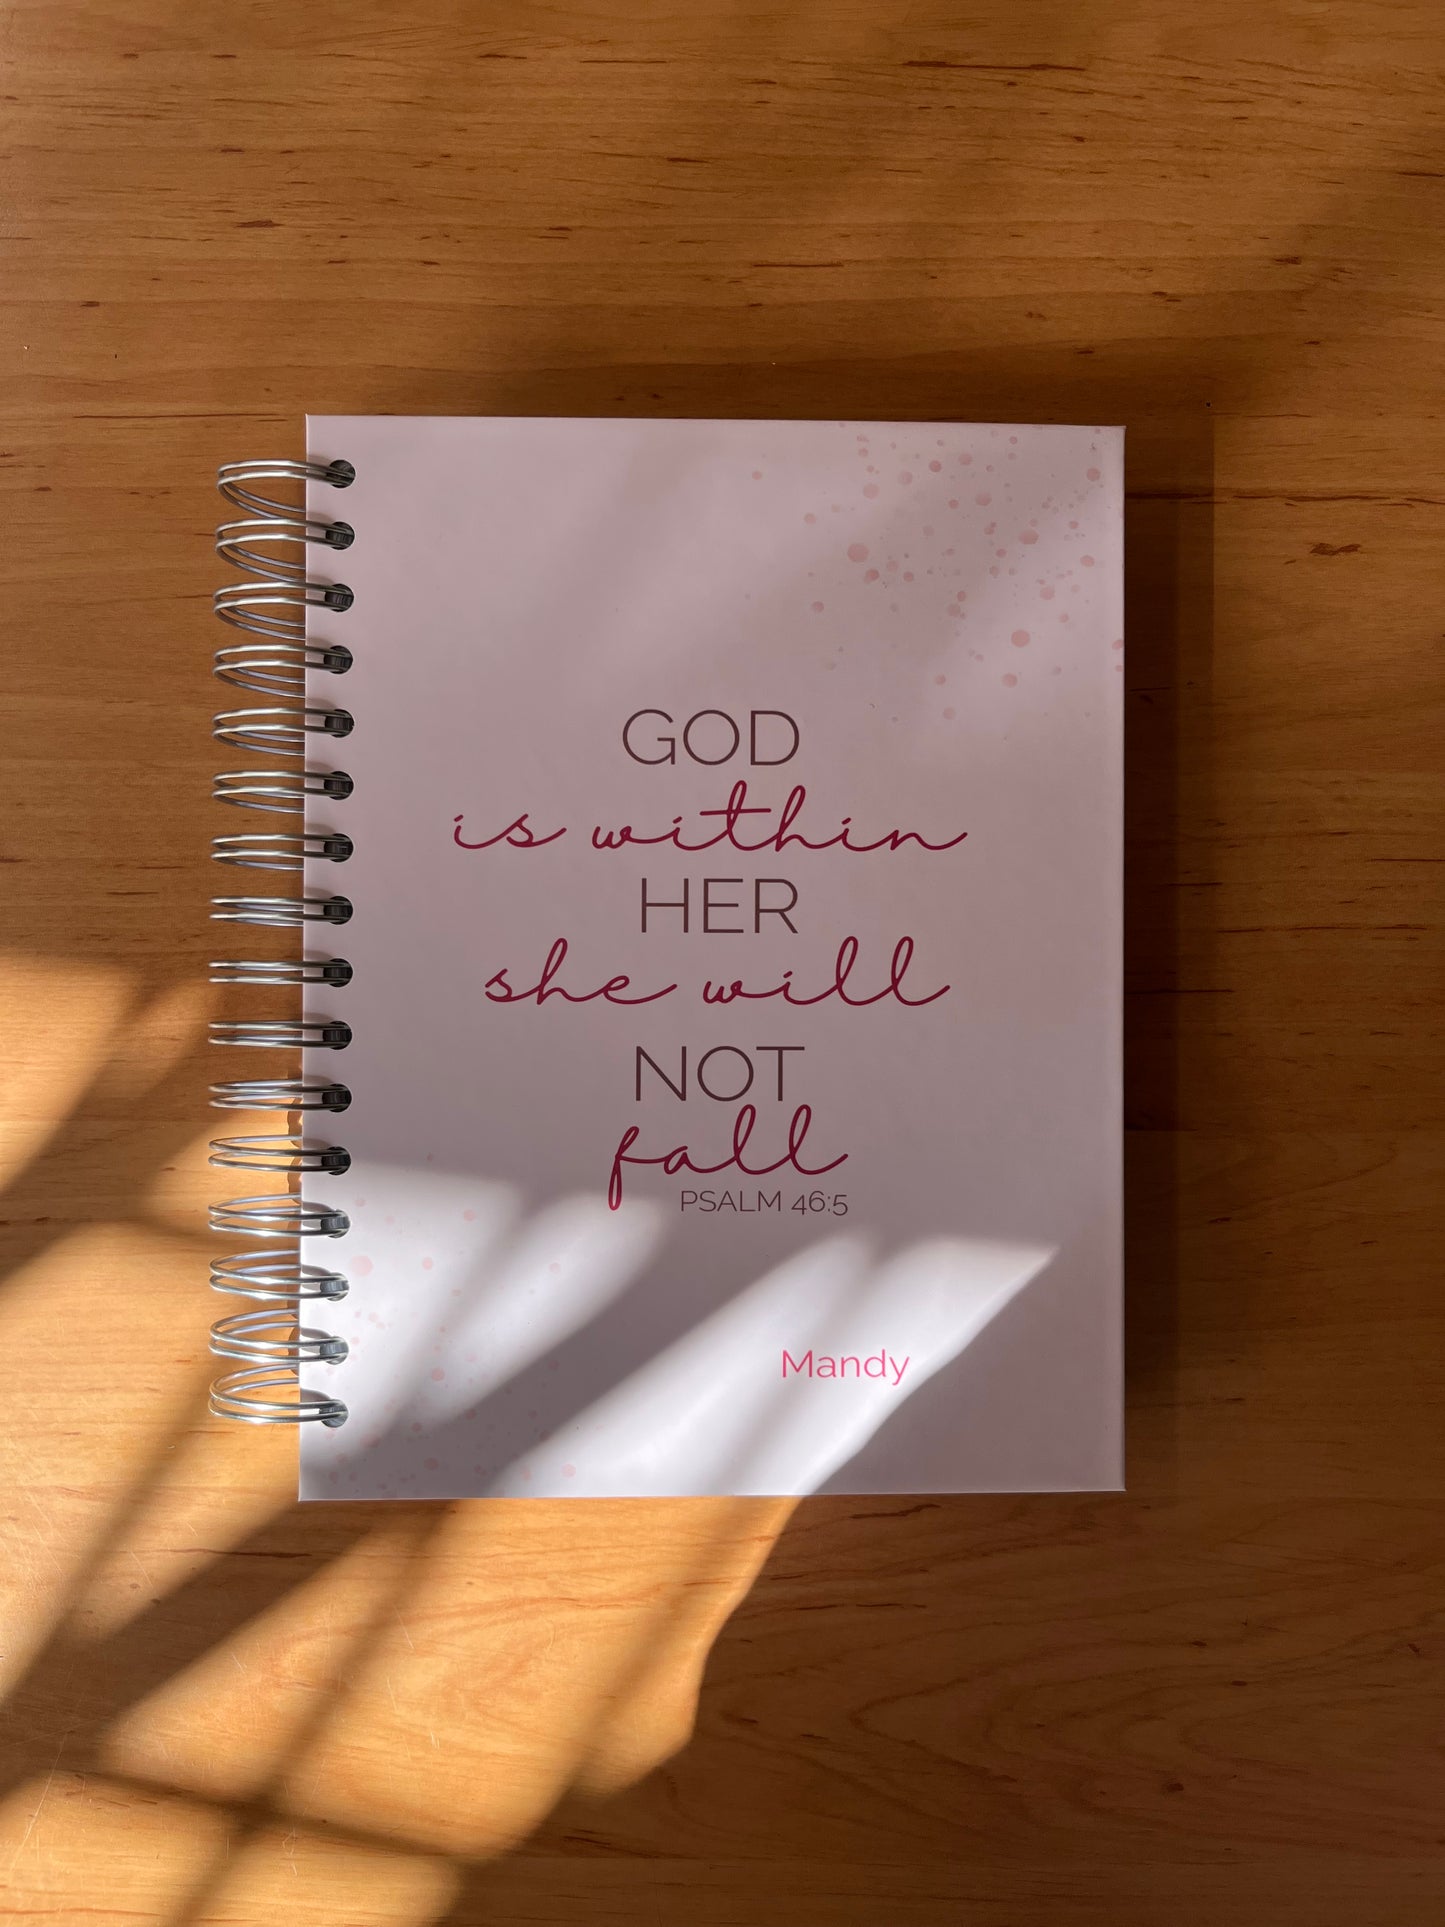 GOD
is within
HER
she will
NOT
fall
PSALM 46:5
Mandy